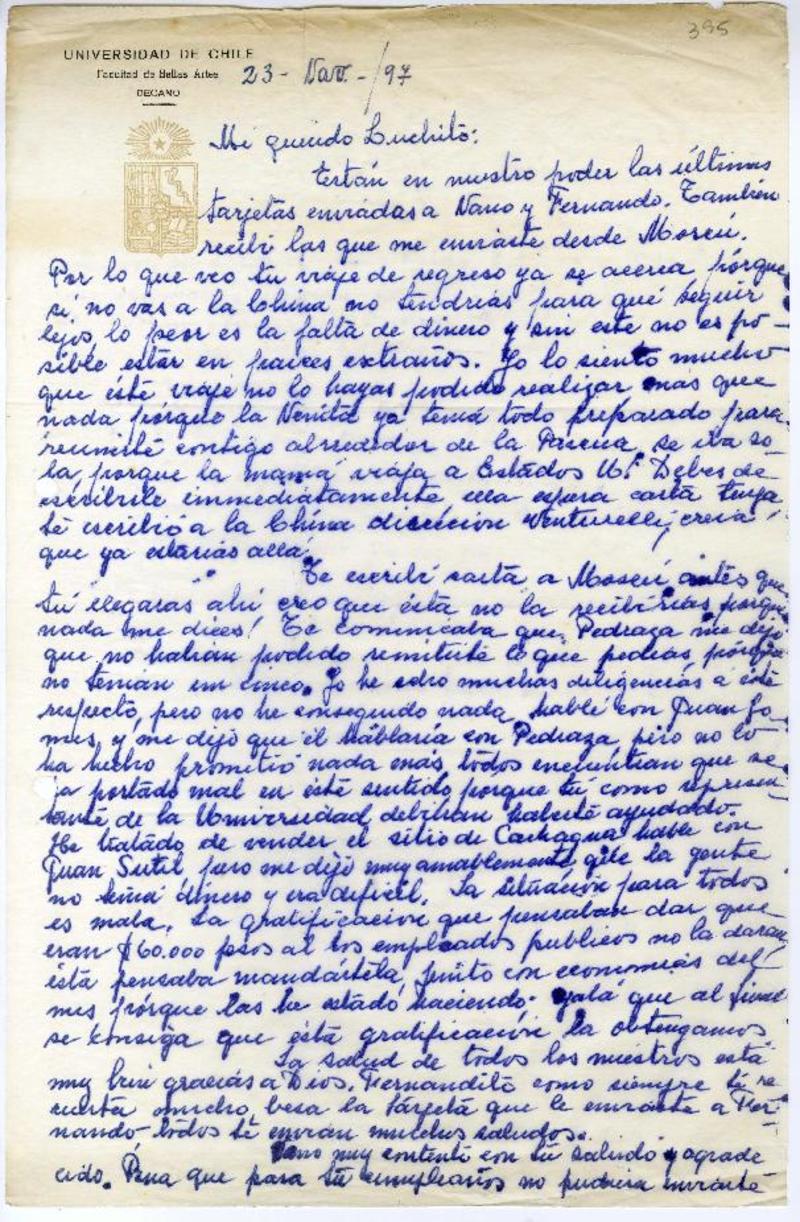 395
UNIVERSIDAD DE CHILE
Facultad de Bellas Artes
DECANO
23 - Nov. - /97
Mi querido Luchito:
Están en nuestro poder las últimas
tarjetas enviadas a Nano y Fernando. También
recibí las que me enviaste desde Moscú.
Por lo que veo tu viaje de regreso ya se acerca pórque
si no vas a la China no tendrías para qué seguir
lejos, lo peor es la falta de dinero y sin este no es po-
sible estar en países extraños. Yo lo siento mucho
que éste viaje no lo hayas podido realizar más que
nada pórque la Nenita ya tenía todo preparado para
reunirse contigo alrededor de la Pascua, se iba so-
la, porque la mamá viaja a Estados U.s Debes de
escribirle immediatamente ella espera carta tuya
te escribió a la China dirección Venturelli, creía
que ya estarías allá.
Te escribí carta a Moscú antes que
tú llegaras ahí creo que ésta no la recibirías porque
nada me dices! Te comunicaba que Pedraza me dijo
que no habían podido remitirte lo que pedías pórque
no tenían un cinco. Yo he echo muchas diligencias a éste
respecto, pero no he conseguido nada, hablé con Juan Go-
mes, y me dijo que él hablaría con Pedraza, pero no lo
ha hecho prometió nada más, todos encuentran que se
ja portado mal en éste sentido pórque tú como represen-
tante de la Universidad debían haberte ayudado.
He tratado de vender el sitio de Cachagua hable con
Juan Sutil, pero me dijó muy amablemente que la gente
no tenía dinero y era dificil. La situación para todos
es mala. La gratificación que pensaban dar que
eran $60.000 pesos al los empleados publicos no la daran
ésta pensaba mandártela, junto con economías del
mes pórque las he estado haciendo. Ojalá que al final
se consiga que ésta gratificación la obtengamos
La salud de todos los nuestros está
muy bien gracias a Dios. Fernandito como siempre te re
cuerda mucho, besa la tarjeta que le enviaste a Fer-
nando - todos te envian muchos saludos.
Nano muy contento con tu saludo y agrade
cido. Pena que para tu cumpleaños no pudiera enviarte